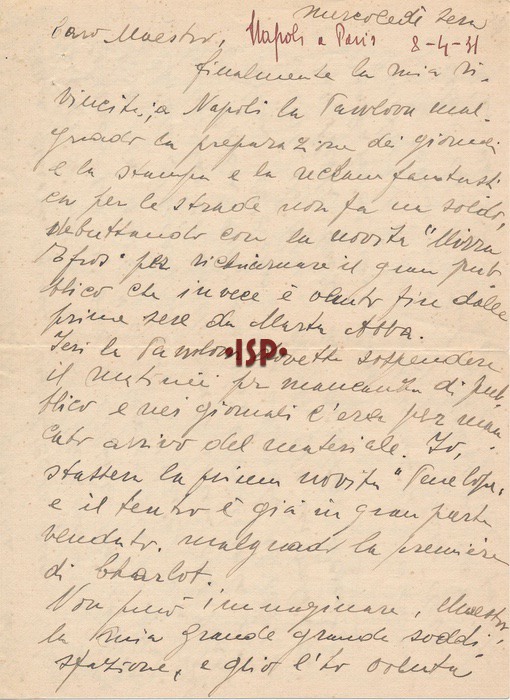 mercoledì sera
Caro Maestro, Napoli a Paris 8-4-31
finalmente la mia ri-
vincita; a Napoli la Pavlova mal-
grado la preparazione dei giornali
e la stampa e la reclam fantasti
ca per le strade non fa un soldo,
debuttando con la novità "Mirra
Efros" per richiamare il gran pub
blico che invece è venuto fin dalle
prime sere da Marta Abba.
Ieri la Pavlova dovette sospendere
il matinée per mancanza di pub
blico e nei giornali c'era per man
cato arrivo del materiale. Io,
stassera la prima novità "Penelope"
e il teatro è già in gran parte
venduto. malgrado la première
di Charlot.
Non può immaginare, Maestro
la mia grande grande soddi
sfazione, e glie l'ho voluta
•ISP•